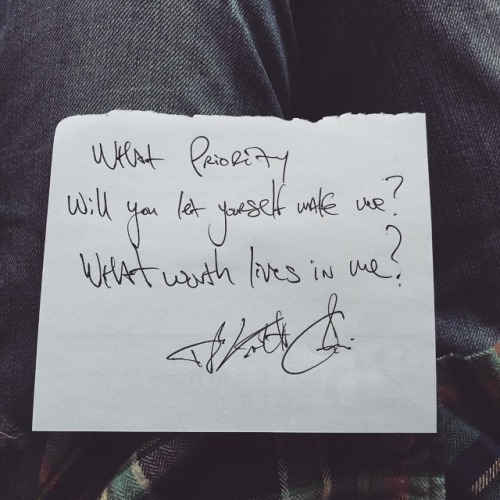 What Priority
Will you let yourself make me?
What worth lives in me?